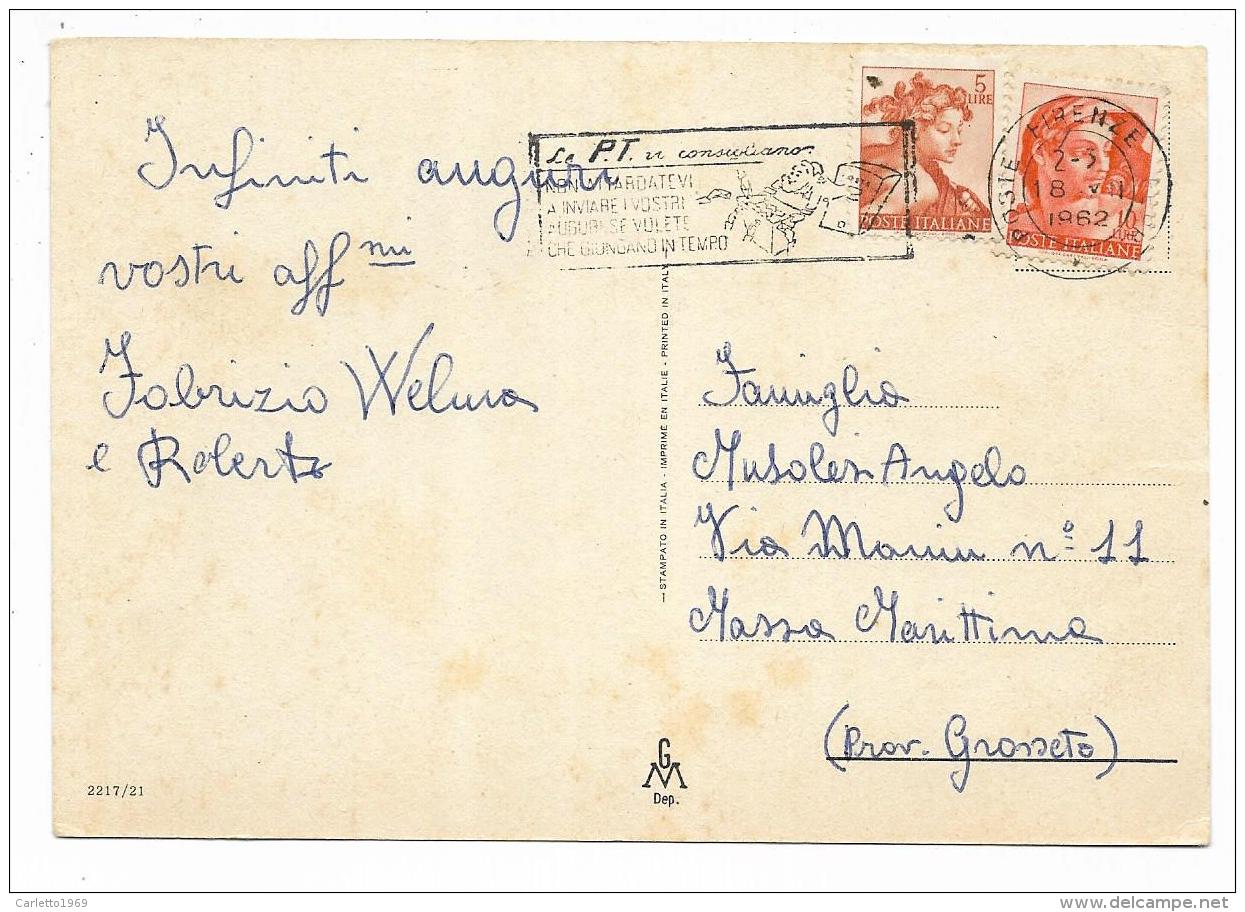 Infiniti auguri
vostri aff ni
Fabrizio Welma
e Roberto
Le P.T. vi consigliano
NON ATTARDATEVI
A INVIARE I VOSTRI
AUGURI SE VOLETE
CHE GIUNGANO IN TEMPO
5
LIRE
POSTE ITALIANE
10
LIRE
POSTE ITALIANE
POSTE FIRENZE
18
1962
STAMPATO IN ITALIA - IMPRIME EN ITALIE - PRINTED IN ITALY
Famiglia
Musolesi Angelo
Via Manin nº 11
Massa Marittima
(Prov. Grosseto)
GM
Dep.
2217/21
Carletto1969
delcampe.net